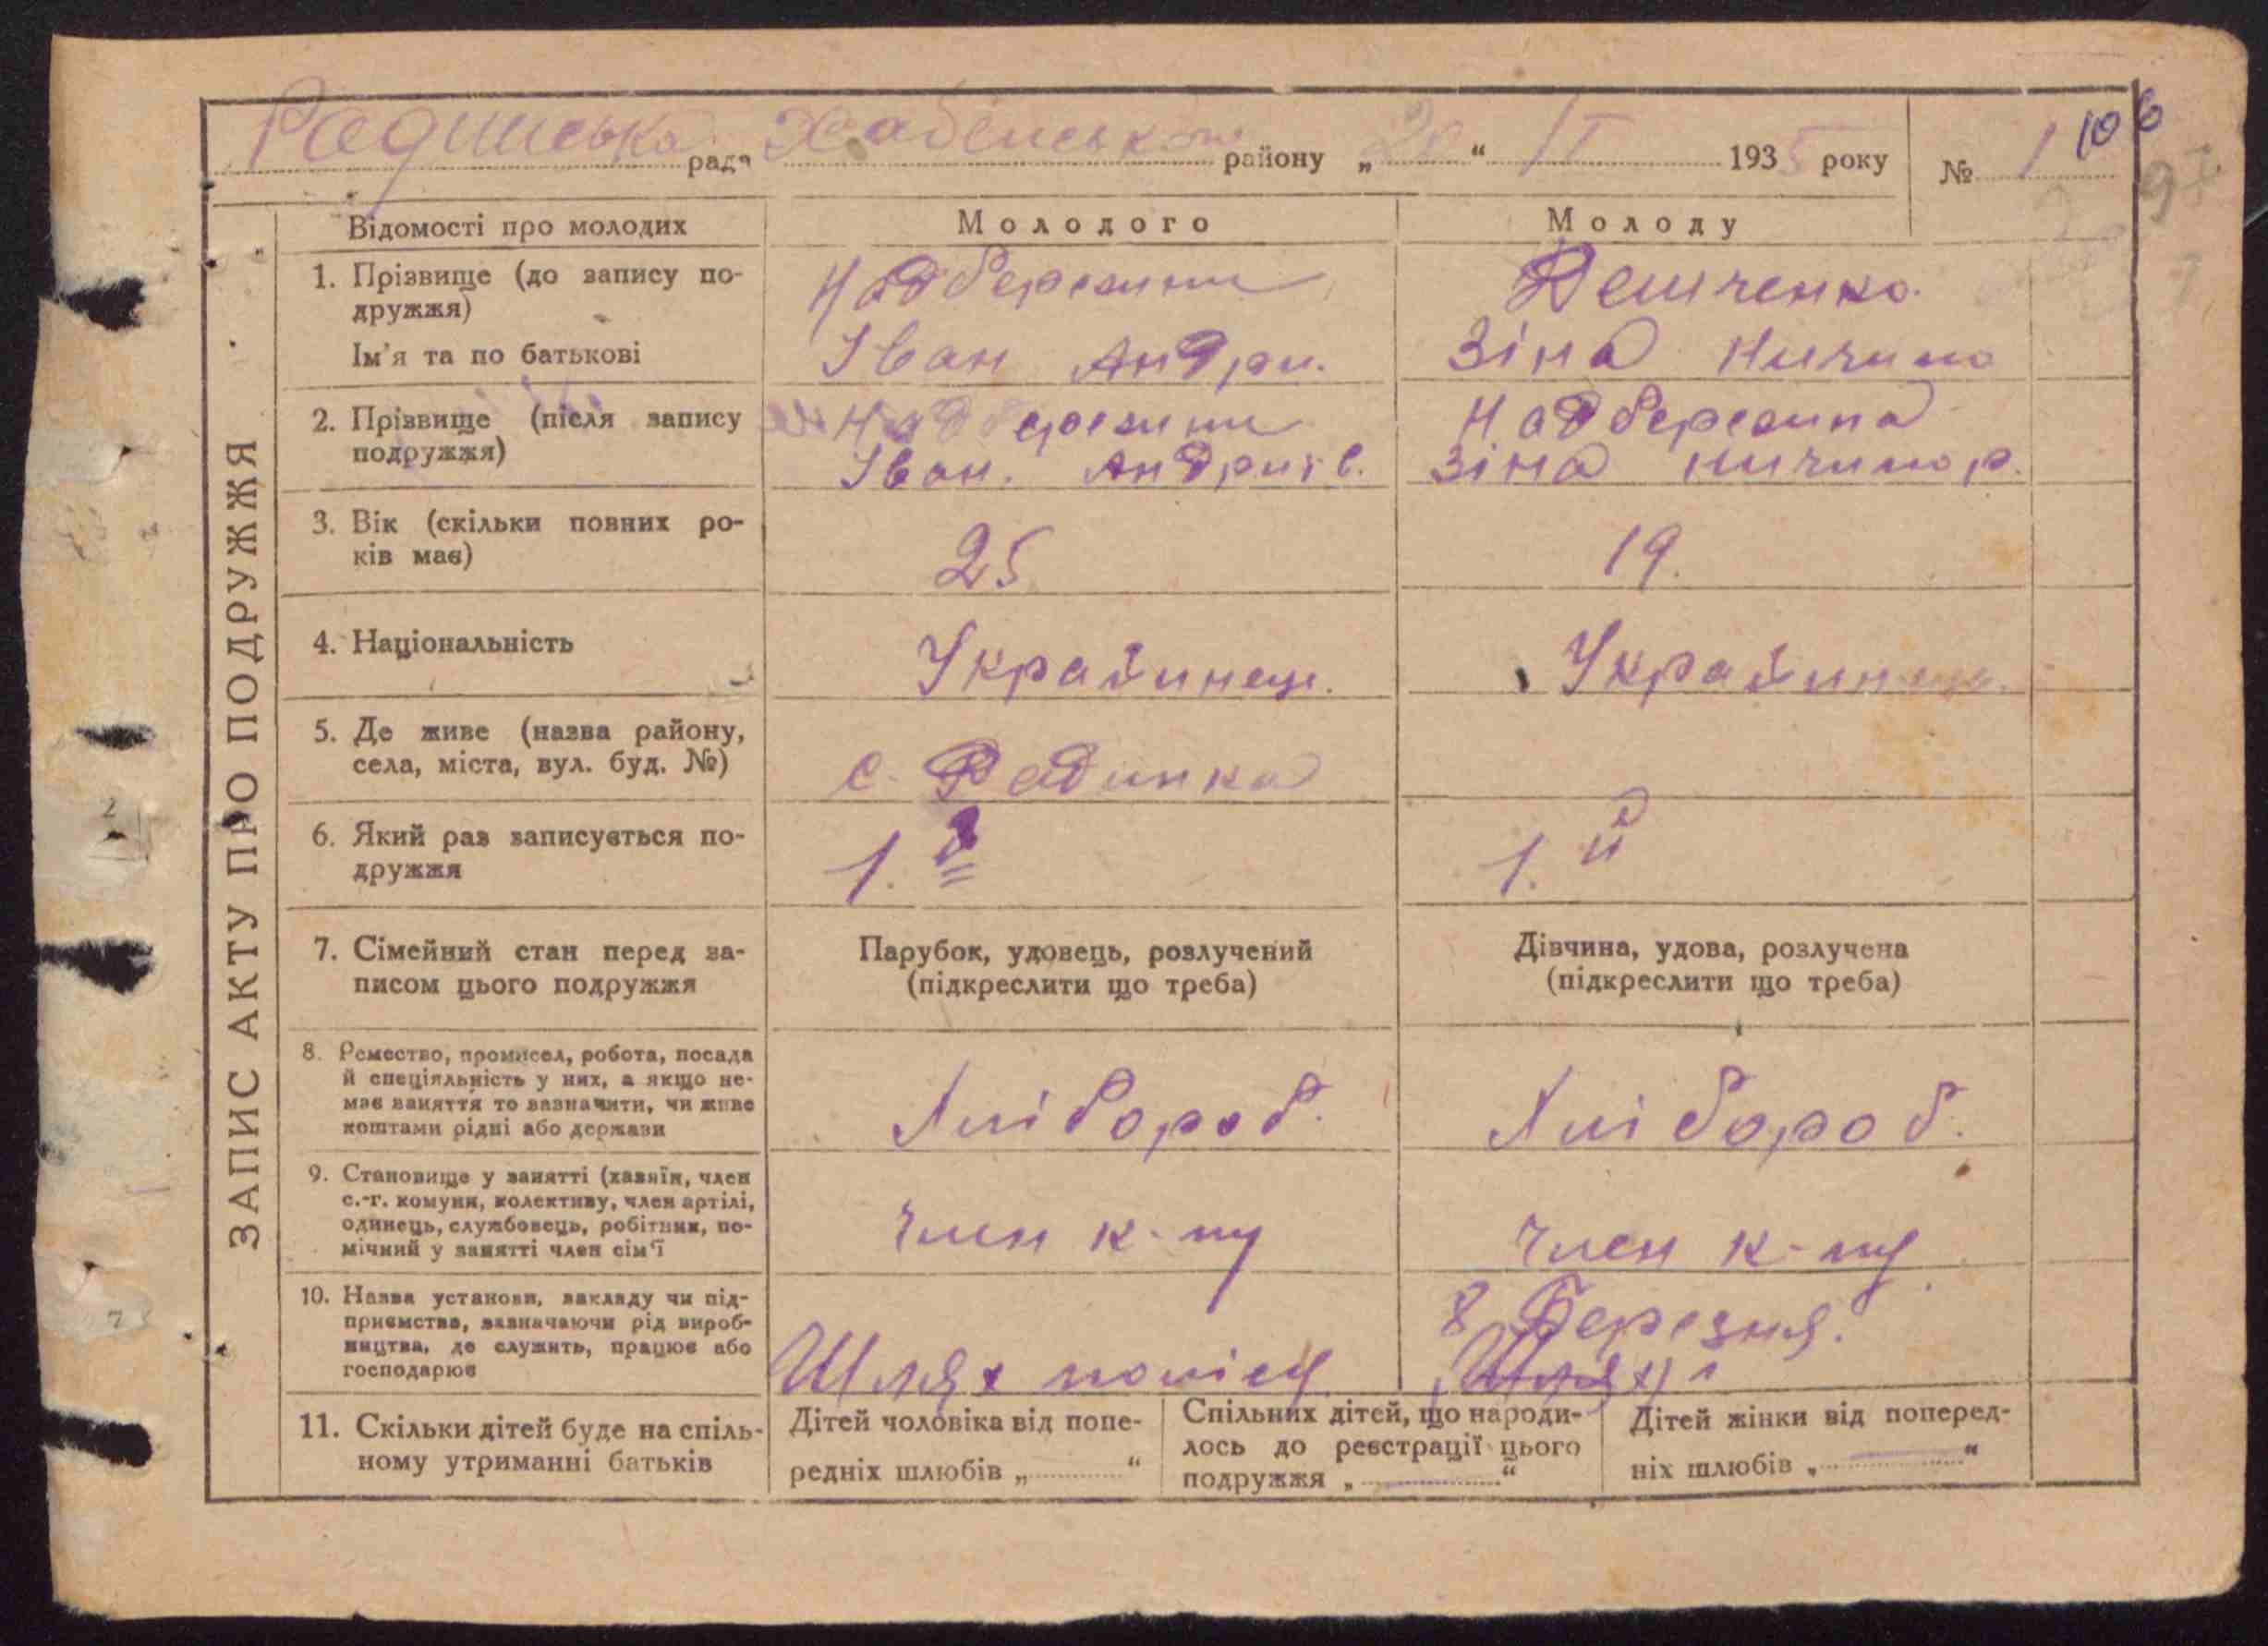 Радинська рада Хабенського району „20“ II 1935 року № 1
106
97
ЗАПИС АКТУ ПРО ПОДРУЖЖЯ
Відомості про молодих
Молодого
Молоду
1. Прізвище (до запису по-
дружжя)
Ім'я та по батькові
Іван Андри.
Демченко
Зіна Ничипо
2. Прізвище (після запису
подружжя)
Іван. Андриів.
Зіна Ничипор.
3. Вік (скільки повних ро-
ків має)
25
19.
4. Національність
Українець.
5. Де живе (назва району,
села, міста, вул. буд. №)
с. Радинка
6. Який раз записується по-
дружжя
1. й
1. й
7. Сімейний стан перед за-
писом цього подружжя
Парубок, удовець, розлучений
(підкреслити що треба)
Дівчина, удова, розлучена
(підкреслити що треба)
8. Ремество, промисел, робота, посада
й спеціяльність у них, а якщо не-
має заняття то зазначити, чи живе
коштами рідні або держави
Хлібороб.
Хлібороб.
9. Становище у занятті (хазяїн, член
с.-г. комуни, колективу, член артілі,
одинець, службовець, робітник, по-
мічний у занятті член сім'ї
член к-пу
член к-пу
10. Назва установи, закладу чи під-
приємства, зазначаючи рід вироб-
ництва, де служить, працює або
господарює
Шлях
8 Березня.
Шлях
11. Скільки дітей буде на спіль-
ному утриманні батьків
Дітей чоловіка від попе-
редніх шлюбів „ “
Спільних дітей, що народи-
лось до реєстрації цього
подружжя „ “
Дітей жінки від поперед-
ніх шлюбів „ “